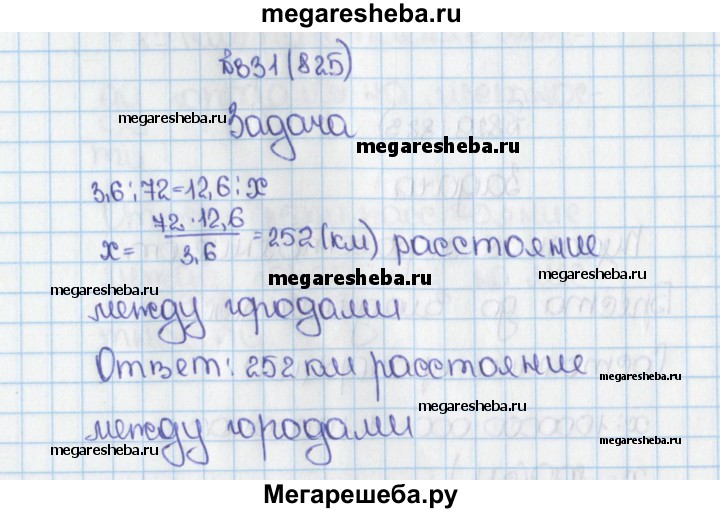 megaresheba.ru
№831(825)
megaresheba.ru
Задача
megaresheba.ru
3,6:72=12,6:x
x= 72·12,6 / 3,6 =252(км) расстояние
megaresheba.ru
megaresheba.ru
megaresheba.ru
между городами
Ответ: 252 км расстояние
megaresheba.ru
megaresheba.ru
между городами
megaresheba.ru
megaresheba.ru
Мегарешеба.ру